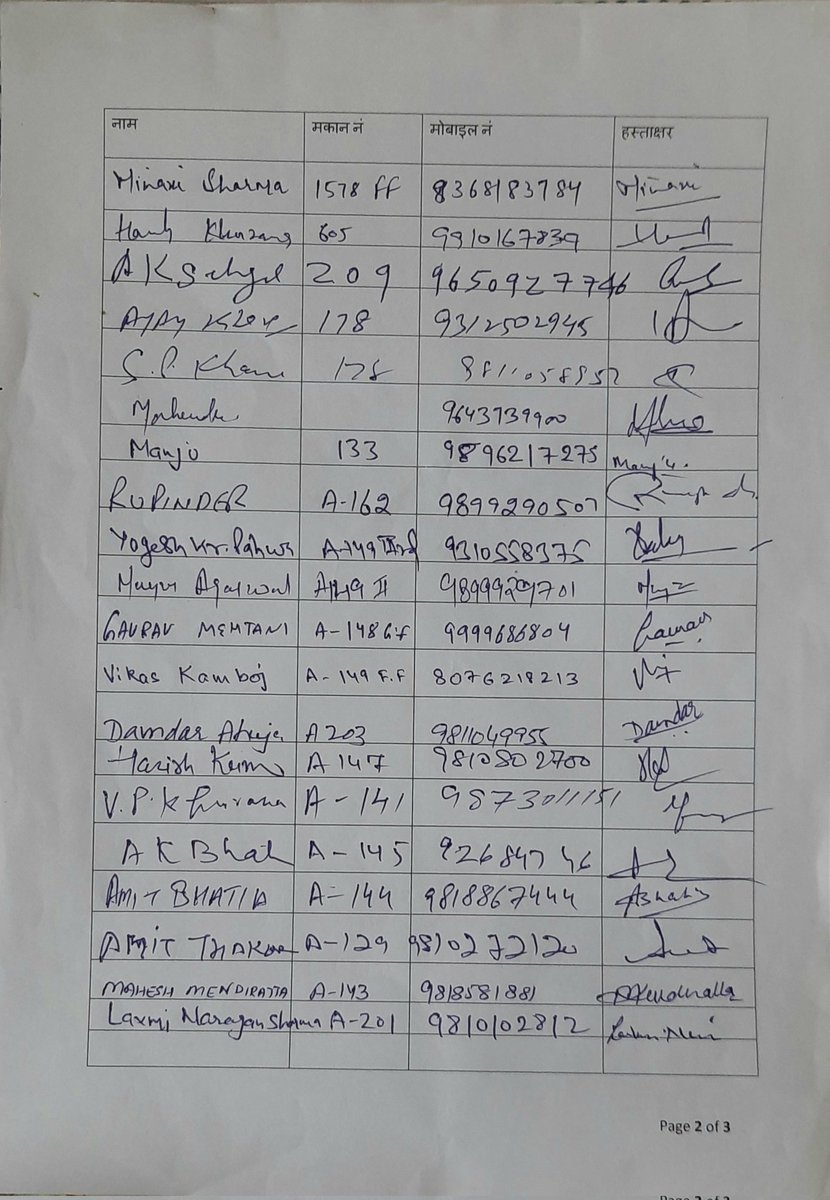 नाम मकान नं मोबाइल नं हस्ताक्षर
Minaxi Sharma 1578 FF 8368183784 Minaxi
605 9910167839
AK Sehgal 209 9650927746
Ajay 178 9312502945
S.P. Khanna 178 9811058957
Mahender 9643739900
Manju 133 9896217275 Manju.
RUPINDER A-162 9899290507
Yogesh Kr. Pahwa A-149 IIIrd 9310558375
Agarwal A149 II
GAURAV MEHTANI A-148 G.F 9999686804 Gaurav
Vikas Kamboj A-149 F.F 8076218213
Damdar Ahuja A 203 9811049955 Damdar
Harish Kumar A 147 9810802700
V.P.Khurana A-141 9873011151
AK Bhat A-145 92684746
AMIT BHATIA A-144 9818867444
AMIT THAKUR A-129 9810272120
MAHESH MENDIRATTA A-143 9818581881
Laxmi Narayan Sharma A-201 9810102812
Page 2 of 3